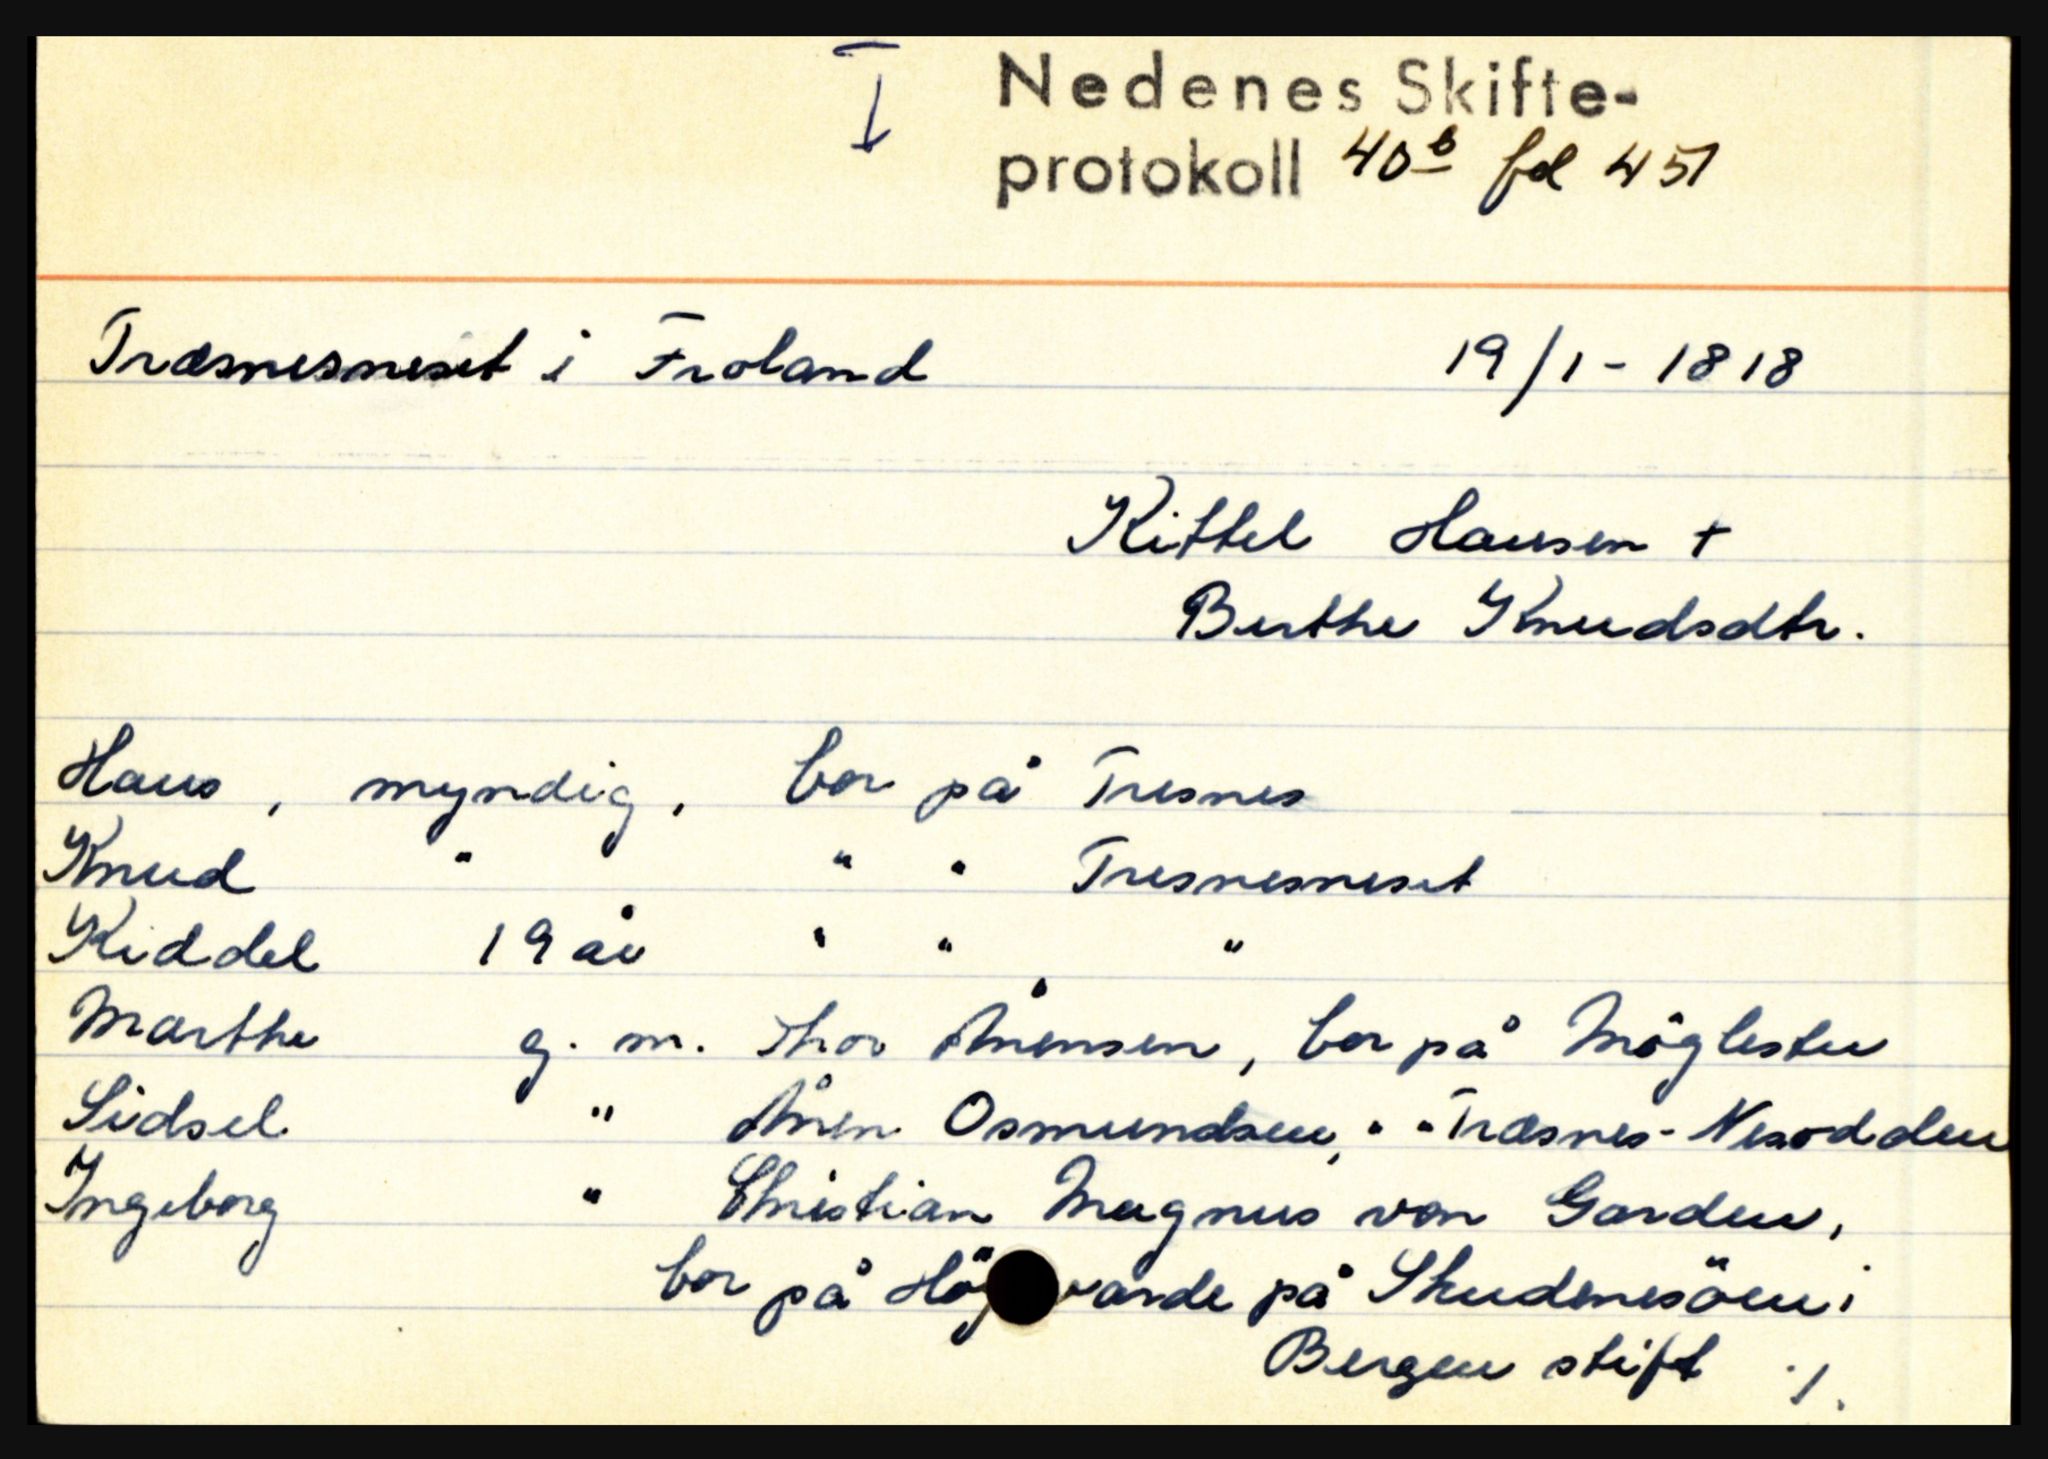 Nedenes Skifte-
protokoll 40b fol 451
Træsnesneset i Froland 19/1-1818
Kittel Hansen +
Berthe Knudsdtr.
Hans, myndig, bor på Tresnes
Knud " " " Tresnesneset
Kiddel 19 år " " "
Marthe g. m. Thor Ånensen, bor på Möglestu
Sidsel " Ånen Osmundsen, " " Træsnes-Nesodden
Ingeborg " Christian Magnus von Garden,
bor på Hög varde på Skudenesöen i
Bergen stift ./.